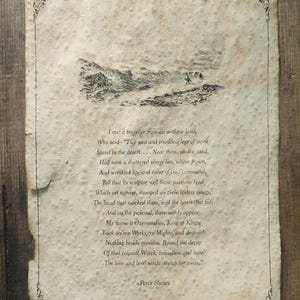 I met a traveller from an antique land,
Who said—"Two vast and trunkless legs of stone
Stand in the desert. . . . Near them, on the sand,
Half sunk a shattered visage lies, whose frown,
And wrinkled lip, and sneer of cold command,
Tell that its sculptor well those passions read
Which yet survive, stamped on these lifeless things,
The hand that mocked them, and the heart that fed;
And on the pedestal, these words appear:
My name is Ozymandias, King of Kings;
Look on my Works, ye Mighty, and despair!
Nothing beside remains. Round the decay
Of that colossal Wreck, boundless and bare
The lone and level sands stretch far away."
-Percy Shelley